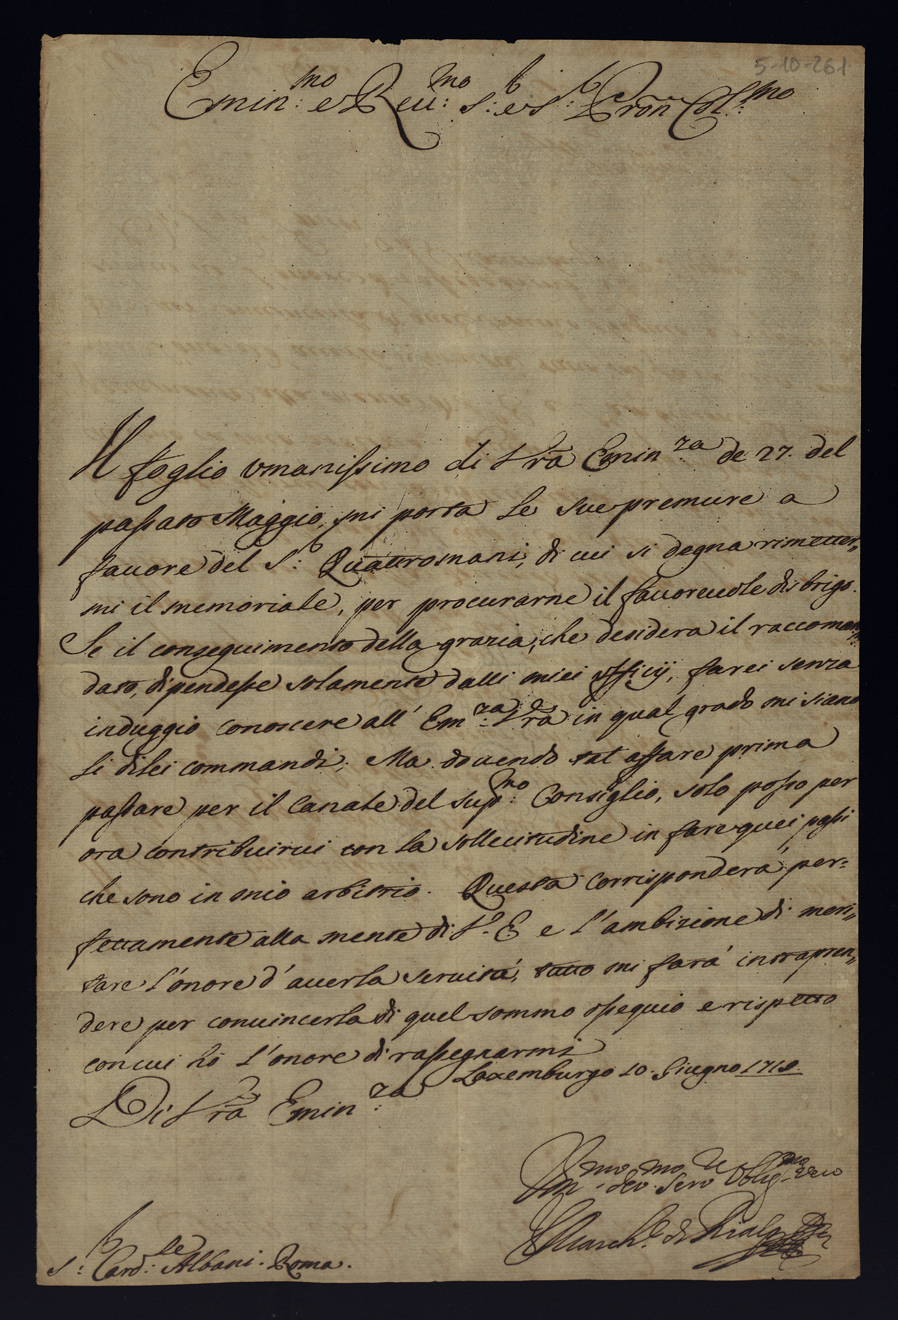 5-10-261
Emin:mo e Reu:mo S:r e S:r Pron Col:mo
Il foglio vmanissimo di Vra Emin:za de 27. del
passato Maggio, mi porta le sue premure a
fauore del S:r Quattromani, di cui si degna rimetter„
mi il memoriale, per procurarne il fauoreuole disbrigo.
Se il conseguimento della grazia, che desidera il raccoman„
dato, dipendesse solamente dalli miei officij, farei senza
induggio conoscere all' Em:za Vra in qual grado mi siano
li dilei commandi; Ma douendo tal affare prima
passare per il canale del sup:mo Consiglio, solo posso per
ora contribuirui con la sollecitudine in fare quei passi
che sono in mio arbitrio. Questa corrispondera' per=
fettamente alla mente di V. E e l'ambizione di meri„
tare l'onore d'auerla seruita', tutto mi fara' intrapren„
dere per conuincerla di quel sommo ossequio e rispetto
con cui hò l'onore di rassegnarmi
Di Vra Emin:za Laxemburgo 10. Giugno 1718.
Vm:mo deo:mo Ser:re Oblig:mo vero
Il March:e di Rialp
S:r Card:le Albani. Roma.